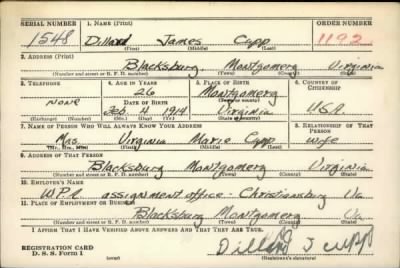 SERIAL NUMBER 1. NAME (Print) ORDER NUMBER
1548 Dillard James Cupp 1192
(First) (Middle) (Last)
2. ADDRESS (Print)
Blacksburg Montgomery Virginia
(Number and street or R. F. D. number) (Town) (County) (State)
3. TELEPHONE 4. AGE IN YEARS 5. PLACE OF BIRTH 6. COUNTRY OF CITIZENSHIP
26 Montgomery
NONE DATE OF BIRTH (Town or county)
Feb. 11 1914 Virginia USA.
(Exchange) (Number) (Mo.) (Day) (Yr.) (State or country)
7. NAME OF PERSON WHO WILL ALWAYS KNOW YOUR ADDRESS 8. RELATIONSHIP OF THAT PERSON
Mrs Virginia Marie Cupp wife
(Mr., Mrs., Miss) (First) (Middle) (Last)
9. ADDRESS OF THAT PERSON
Blacksburg Montgomery Virginia
(Number and street or R. F. D. number) (Town) (County) (State)
10. EMPLOYER'S NAME
W.P.A. assignment office - Christiansburg Va
11. PLACE OF EMPLOYMENT OR BUSINESS
Blacksburg Montgomery Va
(Number and street or R. F. D. number) (Town) (County) (State)
I AFFIRM THAT I HAVE VERIFIED ABOVE ANSWERS AND THAT THEY ARE TRUE.
REGISTRATION CARD Dillard J cupp
D. S. S. Form 1 (over) (Registrant's signature)